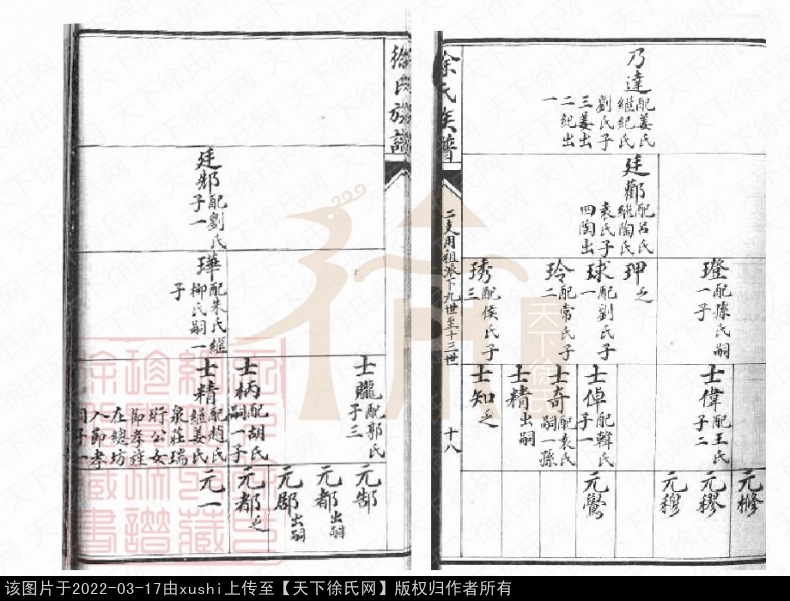 乃達 配姜氏
繼紀氏
劉氏子
三姜出
二紀出
一
廷酈 配呂氏
繼陶氏
袁氏子
四陶出
璒 配孫氏嗣
一子
珅 乏
球 配劉氏子
一
玲 配常氏子
二
琇 配侯氏子
三
士偉 配王氏
子二
士倬 配韓氏
子一
士奇 配袁氏
嗣一孫
士精 出嗣
士知 乏
元樤
元穋
元穆
元鶯
徐氏族譜
二支用祖派下九世至十三世
十八
徐氏族譜
廷郜 配劉氏
子一
琿 配朱氏繼
柳氏嗣一
子
士朧 配郭氏
子三
士柄 配胡氏
嗣一子
士精 配趙氏
繼姜氏
泉莊瑞
珩公女
節孝旌
在總坊
入節孝
祠子一
元郜
元都 出嗣
元郿 出嗣
元都 乏
元一
天下徐氏网
该图片于2022-03-17由xushi上传至【天下徐氏网】版权归作者所有